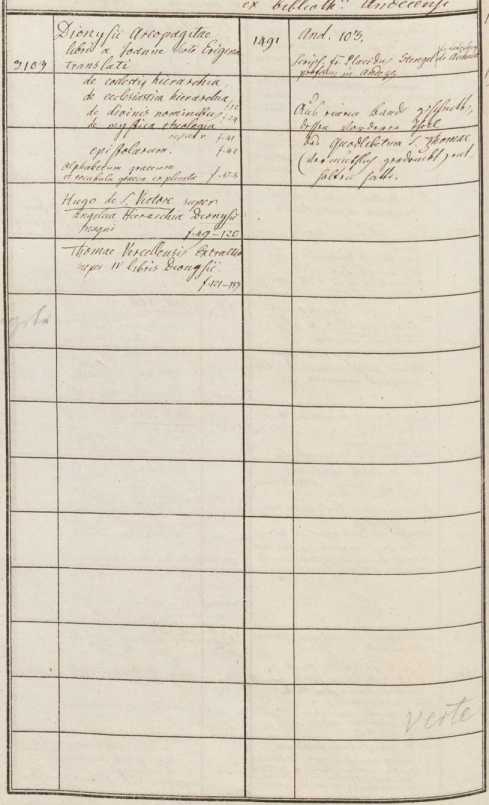 ex biblioth. Andecensi
Dionysii Areopagitae
libri a Joanne Scoto Erigena
3103 translati
de coelesti hierarchia,
de ecclesiastica hierarchia f.12
de divinis nominibus f.24
de mystica theologia f.41
epistolarum. f.42
Alphabetum graecum
et vocabula graeca explicata f.47-8
Hugo de S. Victore super
Angelica Hierarchia Dionysii
magni f.49-120
Thomae Vercellensis Extractio
super IV libris Dionysii.
f.121-157
1491
And. 103.
Scripsit fr. Placidus
professus in Andechs
Aus einem Band
dessen vorderer Theil
das Quodlibetum S. Thomae
(
hatte.
verte